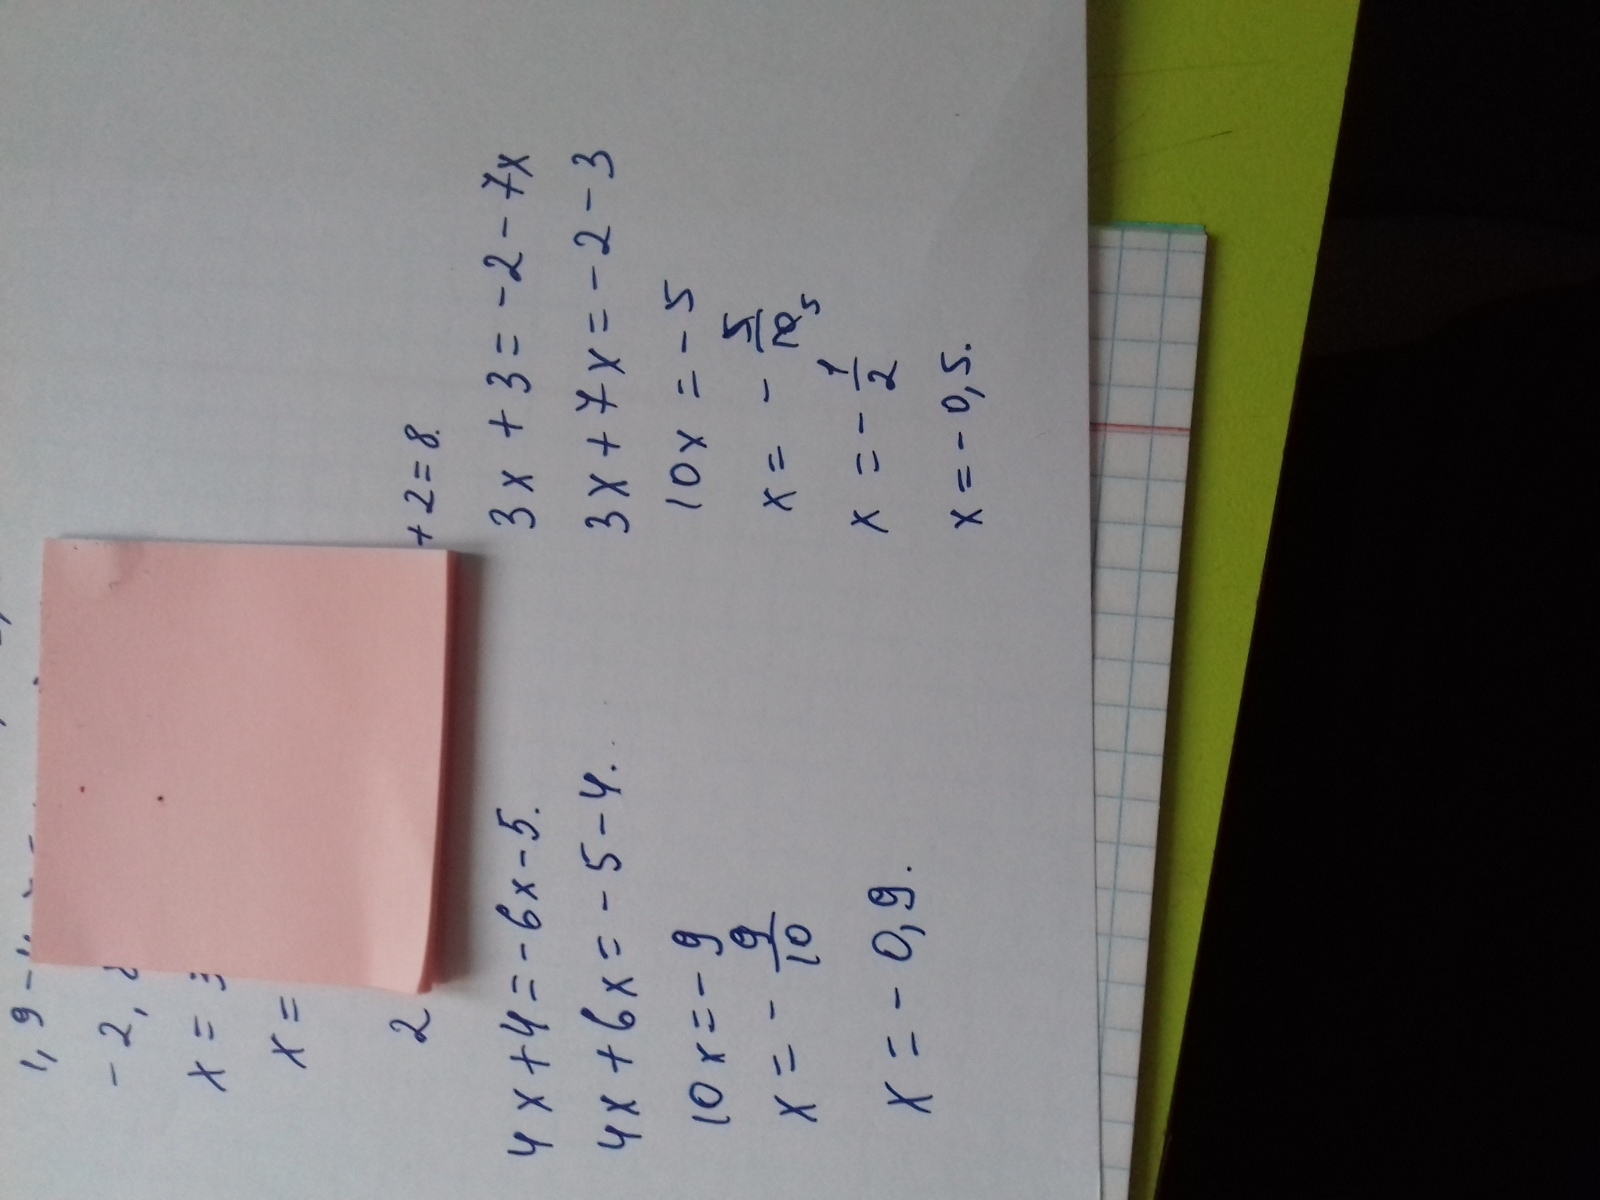 1,9-
-2,
x = 3
x =
2 +2=8.
4x+4=-6x-5.
4x+6x=-5-4.
10x=-9
x=-9/10
x=-0,9.
3x+3=-2-7x
3x+7x=-2-3
10x=-5
x=-5/10 5
x=-1/2
x=-0,5.